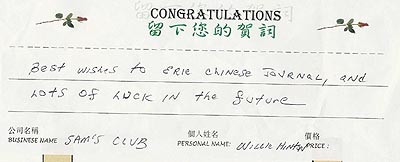 CONGRATULATIONS
留下您的賀詞
Best wishes to Erie Chinese Journal, and
Lots of Luck in the future
公司名稱 個人姓名 價格
BUSINESS NAME SAM'S CLUB PERSONAL NAME: Willie Hinton PRICE: